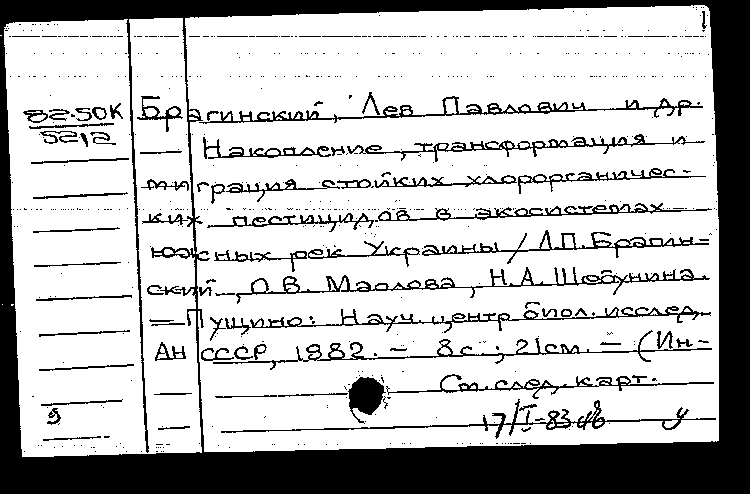 82-50К Брагинский, Лев Павлович и др.
5212 Накопление, трансформация и
миграция стойких хлорорганичес-
ких пестицидов в экосистемах
южных рек Украины / Л.П. Брагин-
ский, О.В. Маслова, Н.А. Шобунина.
— Пущино: Науч. центр биол. исслед.
АН СССР, 1982. — 8с.; 21см. — (Ин-
См. след. карт.
17/I-83